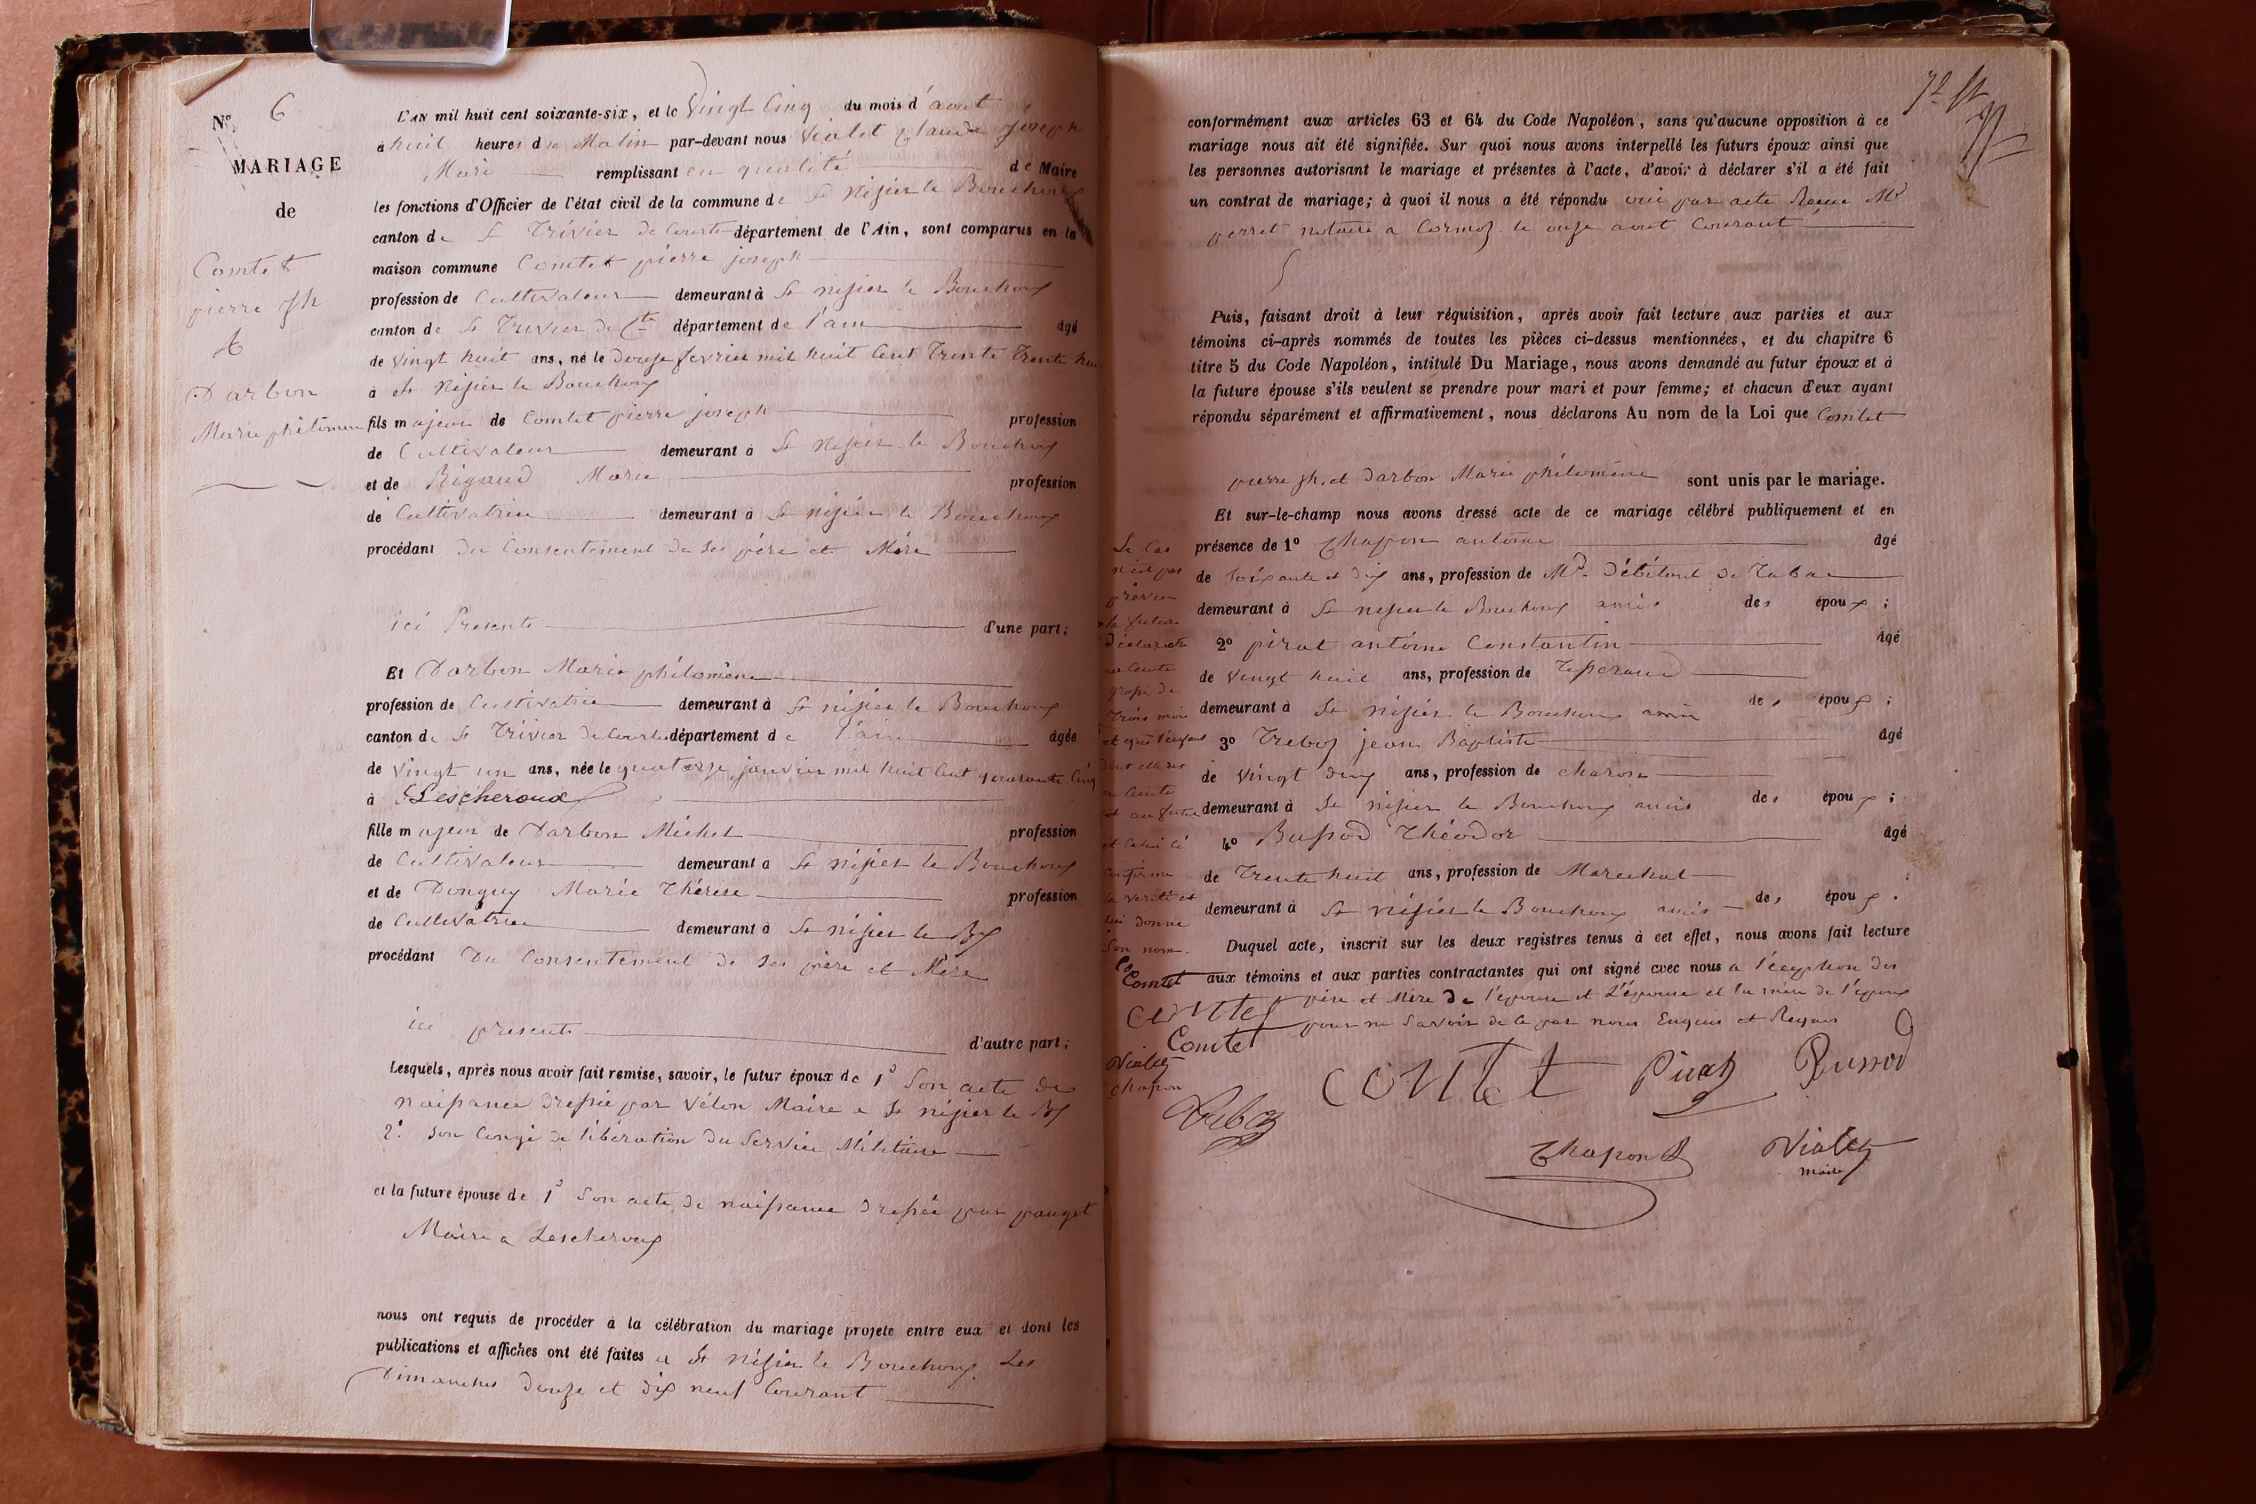 N° 6
MARIAGE
de
Comtet
pierre jh
&
Darbon
Marie philomène
L'AN mil huit cent soixante-six, et le vingt Cinq du mois d'aout
à huit heures du Matin par-devant nous Vialet Claude joseph
Marie remplissant en qualité de Maire
les fonctions d'Officier de l'état civil de la commune de St Nizier le Bouchoux
canton de St Trivier de Courtes département de l'Ain, sont comparus en la
maison commune Comtet pierre joseph
profession de Cultivateur demeurant à St nizier le Bouchoux
canton de St Trivier de Ctes département de l'ain âgé
de vingt huit ans, né le douze fevrier mil huit Cent Trente Trente huit
à St Nizier le Bouchoux
fils majeur de Comtet pierre joseph profession
de Cultivateur demeurant à St Nizier le Bouchoux
et de Rigaud Marie profession
de Cultivatrice demeurant à St nizier le Bouchoux
procédant du Consentement de Ses père et Mère
ici Presents d'une part;
Et Darbon Marie philomène
profession de Cultivatrice demeurant à St nizier le Bouchoux
canton de St Trivier de Courtes département de l'ain âgée
de vingt un ans, née le quatorze janvier mil huit Cent quarante Cinq
à Lescheroux
fille majeur de Darbon Michel profession
de Cultivateur demeurant à St nizier le Bouchoux
et de Donguy Marie Thérèse profession
de Cultivatrice demeurant à St nizier le Bx
procédant Du Consentement de Ses père et Mère
ici presents d'autre part;
Lesquels, après nous avoir fait remise, savoir, le futur époux de 1° Son acte de
naissance dressée par Vélon Maire a St nizier le Bx
2° Son Congé de libération du Service Militaire
et la future épouse de 1° Son acte de naissance dressée par pauget
Maire a Lescheroux
nous ont requis de procéder à la célébration du mariage projeté entre eux et dont les
publications et affiches ont été faites a St Nizier le Bouchoux Les
Dimanches douze et dix neuf Courant
conformément aux articles 63 et 64 du Code Napoléon, sans qu'aucune opposition à ce
mariage nous ait été signifiée. Sur quoi nous avons interpellé les futurs époux ainsi que
les personnes autorisant le mariage et présentes à l'acte, d'avoir à déclarer s'il a été fait
un contrat de mariage; à quoi il nous a été répondu oui par acte Recue Me
perret notaire a Cormoz le onze aout Courant
Puis, faisant droit à leur réquisition, après avoir fait lecture aux parties et aux
témoins ci-après nommés de toutes les pièces ci-dessus mentionnées, et du chapitre 6
titre 5 du Code Napoléon, intitulé Du Mariage, nous avons demandé au futur époux et à
la future épouse s'ils veulent se prendre pour mari et pour femme; et chacun d'eux ayant
répondu séparément et affirmativement, nous déclarons Au nom de la Loi que Comtet
pierre jh. et Darbon Marie philomène sont unis par le mariage.
Et sur-le-champ nous avons dressé acte de ce mariage célébré publiquement et en
présence de 1° Chapon antoine âgé
de Soixante et dix ans, profession de Md. Débitent de Tabac
demeurant à St nizier le Bouchoux amis des époux;
2° pirat antoine Constantin âgé
de vingt huit ans, profession de Tisserand
demeurant à St nizier le Bouchoux amis des époux;
3° Treboz jean Baptiste âgé
de vingt deux ans, profession de charron
demeurant à St nizier le Bouchoux amis des époux;
4° Bussod Théodor âgé
de Trente huit ans, profession de Marechal
demeurant à St nizier le Bouchoux amis des époux.
Duquel acte, inscrit sur les deux registres tenus à cet effet, nous avons fait lecture
aux témoins et aux parties contractantes qui ont signé avec nous a l'exception des
père et Mère de l'epouse et L'épouse et la mère de l'epoux
pour ne Savoir de ce par nous Enquis et Requis
Le Cas
n'est pas
prévu
la future
déclarant
enceinte
grosse de
trois mois
et que l'enfant
dont elle est
enceinte
et au futur
et celui ci
confirme
la vérité et
lui donne
Son nom.
Comtet
Comtet
Comtet
Vialet
Chapon
Treboz
Comtet Pirat Bussod
Chapon Vialet
maire